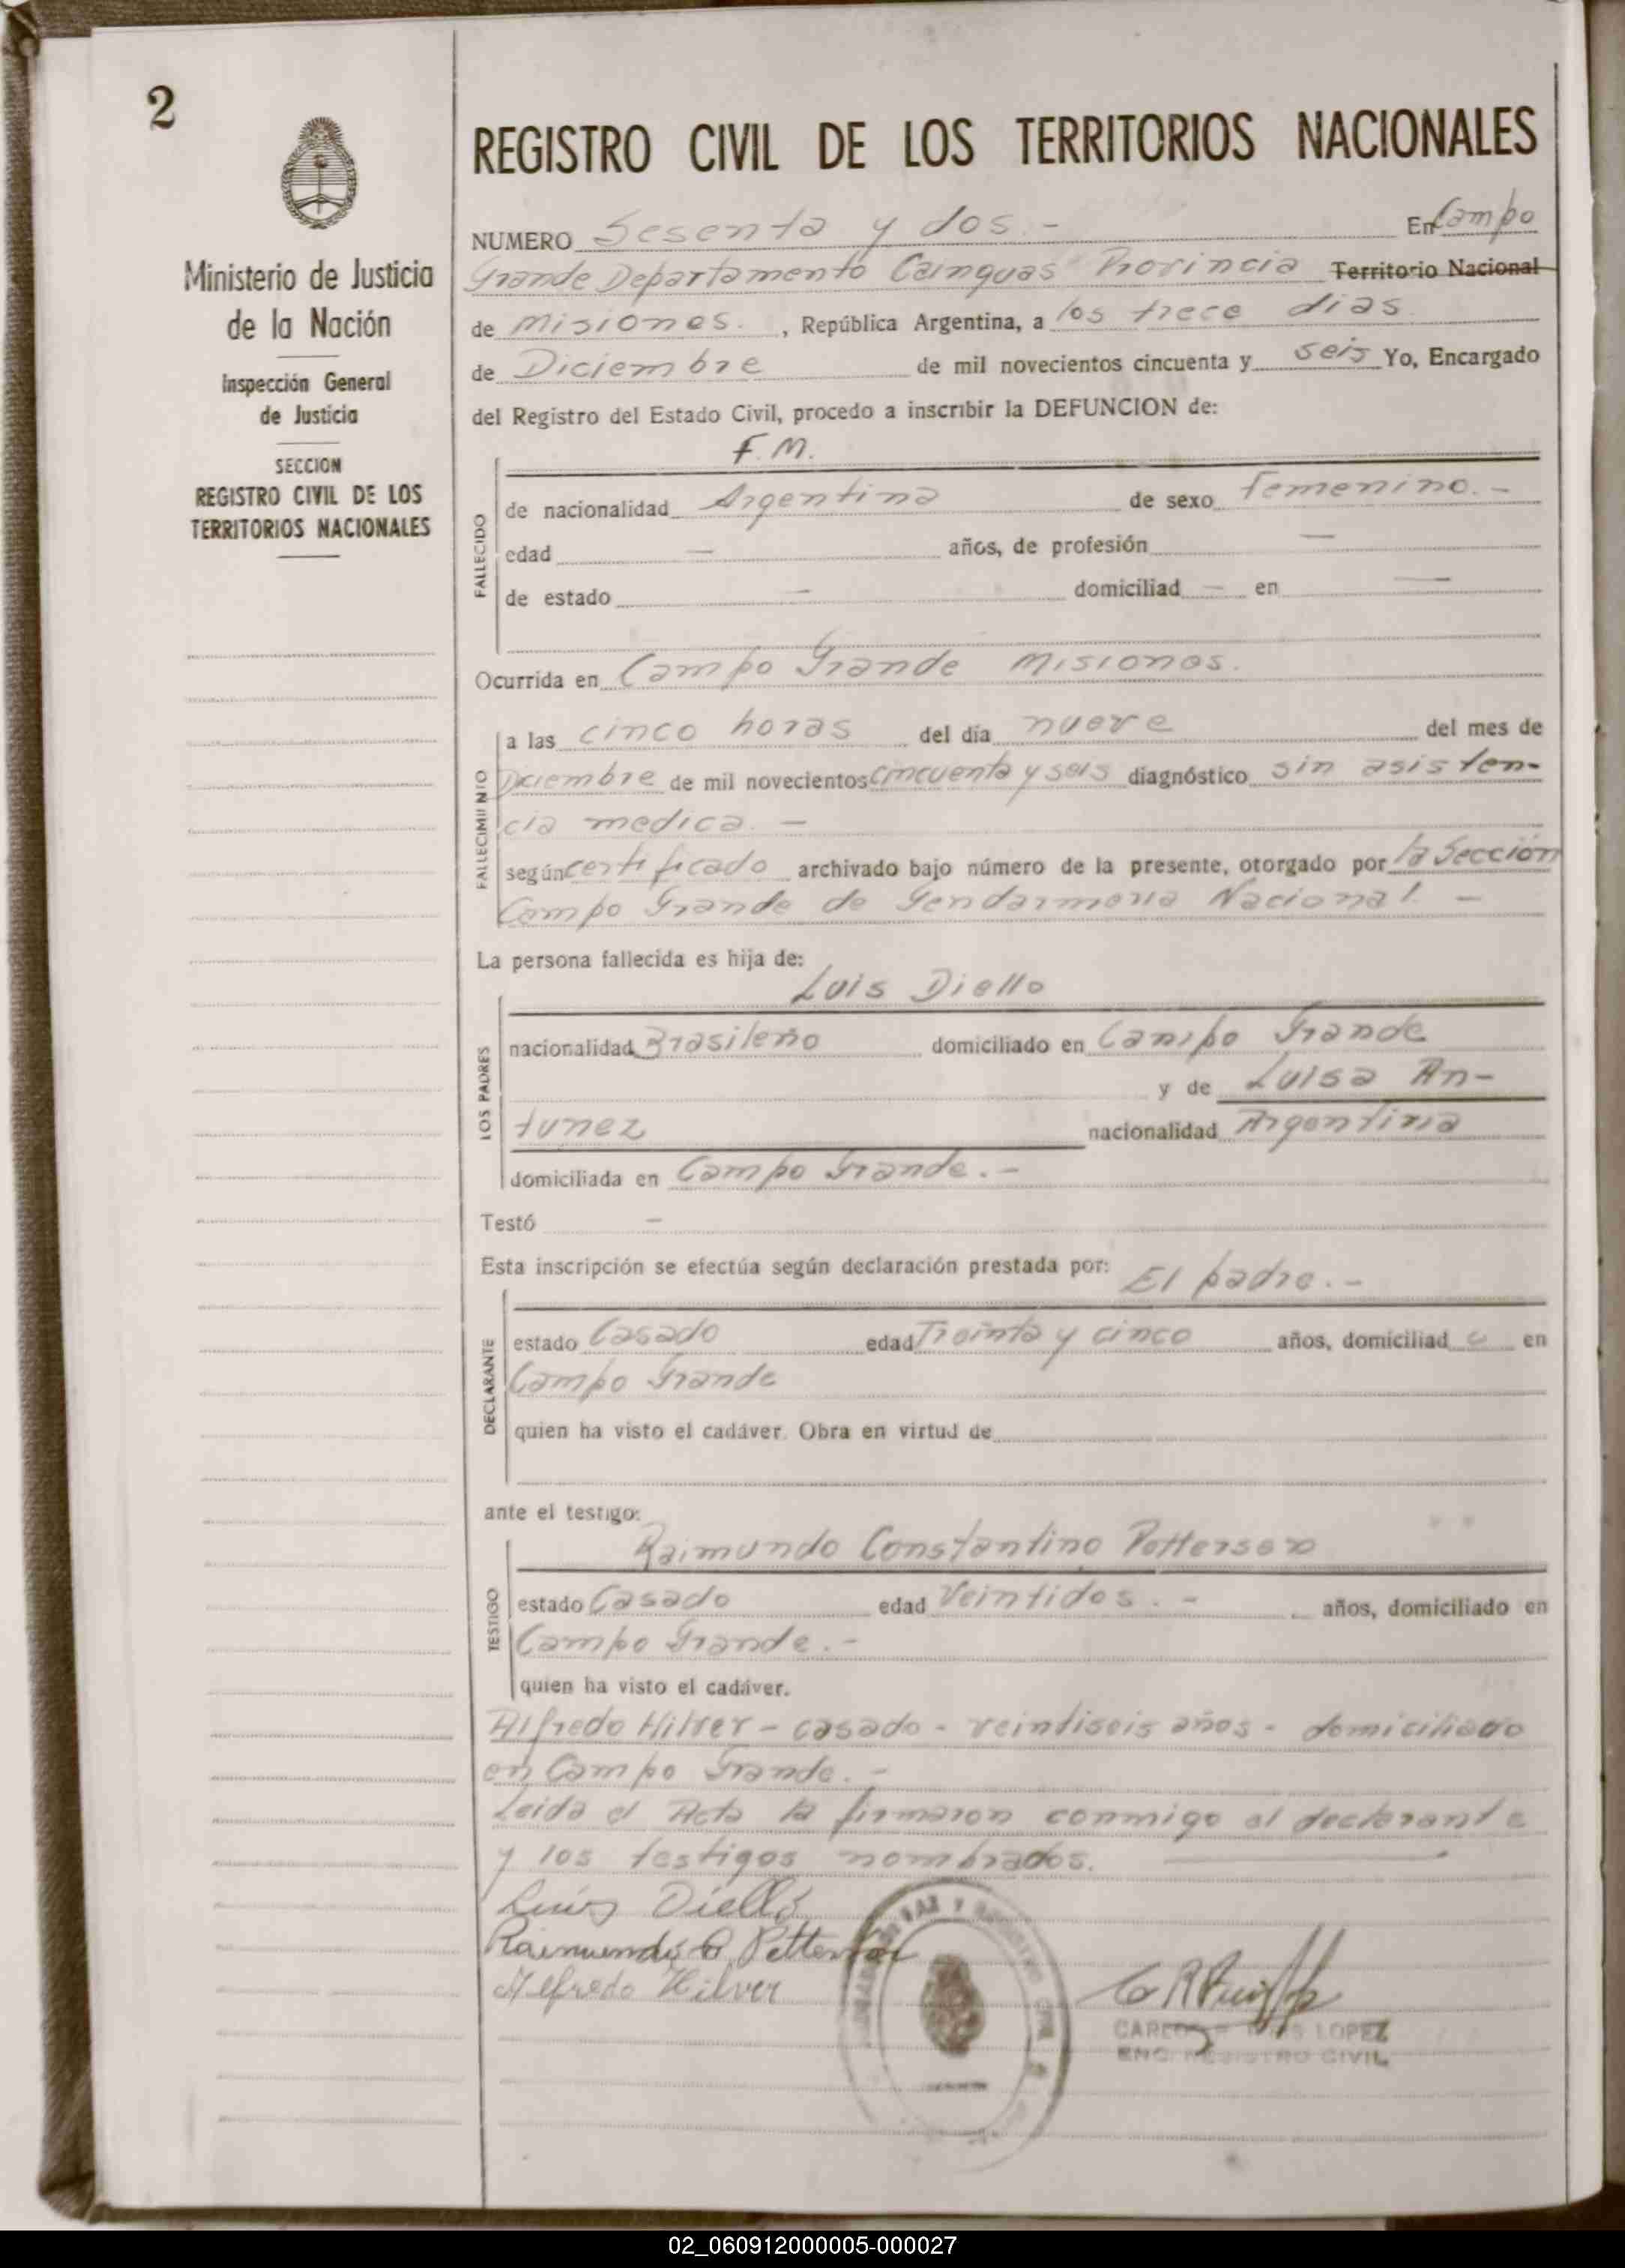 2
Ministerio de Justicia
de la Nación
Inspección General
de Justicia
SECCION
REGISTRO CIVIL DE LOS
TERRITORIOS NACIONALES
REGISTRO CIVIL DE LOS TERRITORIOS NACIONALES
NUMERO Sesenta y dos.- En Campo
Grande Departamento Cainguas Provincia Territorio Nacional
de Misiones. , República Argentina, a los trece dias
de Diciembre de mil novecientos cincuenta y seis Yo, Encargado
del Registro del Estado Civil, procedo a inscribir la DEFUNCION de:
F. M.
FALLECIDO
de nacionalidad Argentina de sexo femenino.-
edad — años, de profesión —
de estado — domiciliad — en —
Ocurrida en Campo Grande Misiones.
FALLECIMIENTO
a las cinco horas del día nueve del mes de
Diciembre de mil novecientos cincuenta y seis diagnóstico sin asisten-
cia medica. —
según certificado archivado bajo número de la presente, otorgado por la Sección
Campo Grande de Gendarmeria Nacional. —
La persona fallecida es hija de:
Luis Diello
LOS PADRES
nacionalidad Brasileño domiciliado en Campo Grande
y de Luisa An-
tunez nacionalidad Argentina
domiciliada en Campo Grande.-
Testó —
Esta inscripción se efectúa según declaración prestada por: El padre.-
DECLARANTE
estado Casado edad Treinta y cinco años, domiciliad o en
Campo Grande
quien ha visto el cadáver. Obra en virtud de
ante el testigo:
Raimundo Constantino Pettersen
TESTIGO
estado Casado edad Veintidos.- años, domiciliado en
Campo Grande.-
quien ha visto el cadáver.
Alfredo Hilver - casado - veintiseis años - domiciliado
en Campo Grande.-
Leida el Acta la firmaron conmigo el declarante
y los testigos nombrados.
Luis Diello
Raimundo C. Pettersen
Alfredo Hilver
CARLOS LOPEZ
ENC. REGISTRO CIVIL
02_060912000005-000027